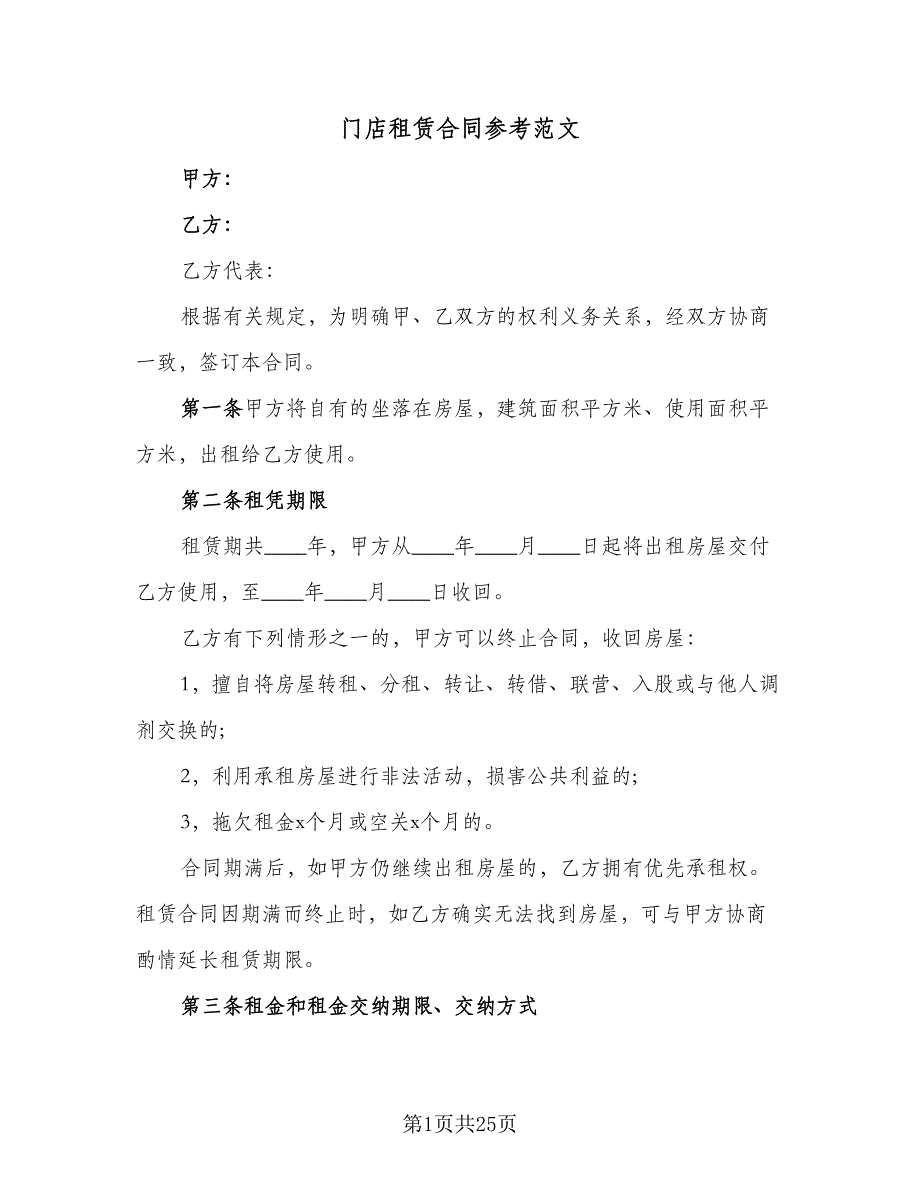 门店租赁合同参考范文
甲方：
乙方：
乙方代表：
根据有关规定，为明确甲、乙双方的权利义务关系，经双方协商
一致，签订本合同。
第一条甲方将自有的坐落在房屋，建筑面积平方米、使用面积平
方米，出租给乙方使用。
第二条租凭期限
租赁期共____年，甲方从____年____月____日起将出租房屋交付
乙方使用，至____年____月____日收回。
乙方有下列情形之一的，甲方可以终止合同，收回房屋：
1，擅自将房屋转租、分租、转让、转借、联营、入股或与他人调
剂交换的;
2，利用承租房屋进行非法活动，损害公共利益的;
3，拖欠租金x个月或空关x个月的。
合同期满后，如甲方仍继续出租房屋的，乙方拥有优先承租权。
租赁合同因期满而终止时，如乙方确实无法找到房屋，可与甲方协商
酌情延长租赁期限。
第三条租金和租金交纳期限、交纳方式
第1页共25页